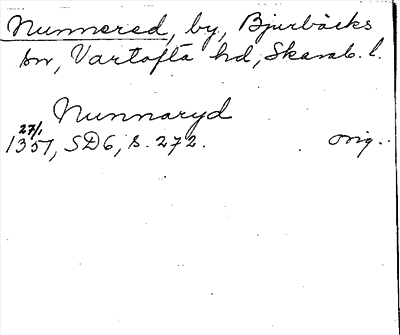 Nunnered, by, Bjurbäcks
sn, Vartofta hd, Skarab. l.
Nunnaryd
27/1
1357, SD6, s. 272. orig.